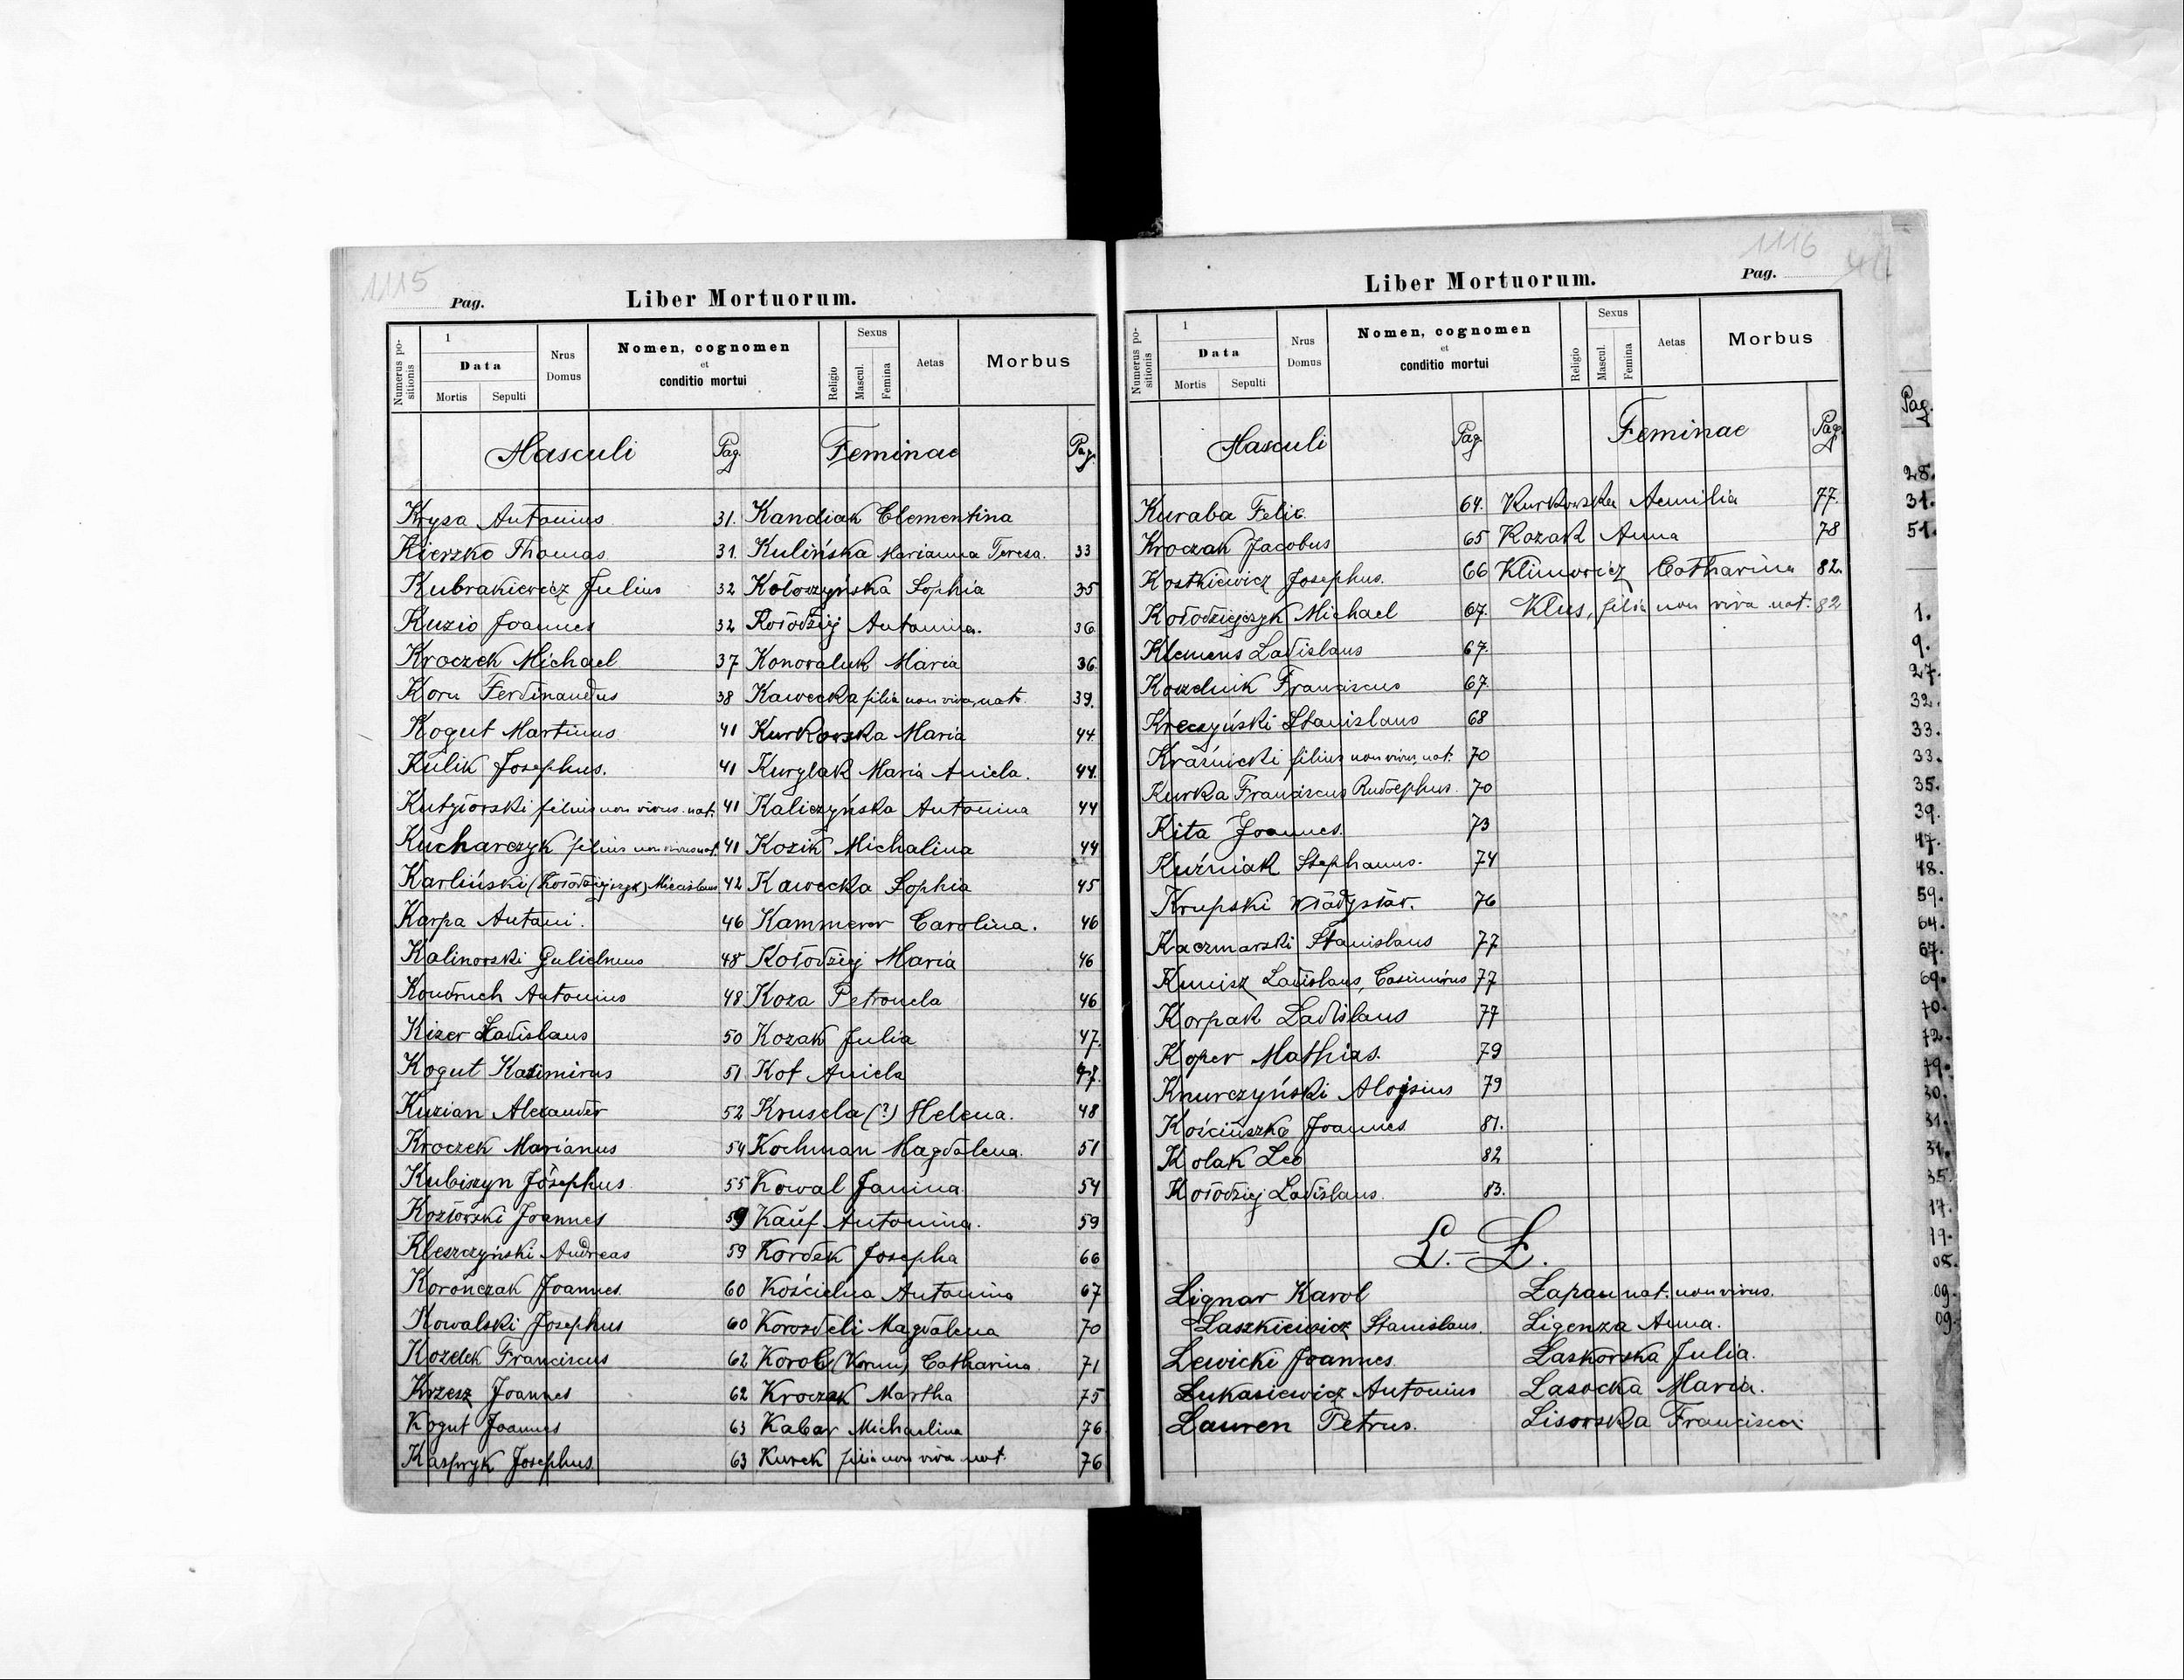 1115
Pag.
Liber Mortuorum.
Numerus positionis
1
Data
Mortis
Sepulti
Nrus Domus
Nomen, cognomen
et
conditio mortui
Religio
Sexus
Mascul.
Femina
Aetas
Morbus
Masculi Pag. Feminae Pag.
Krysa Antonius 31. Kandiak Clementina
Kierzko Thomas 31. Kulińska Marianna Teresa. 33
Kubrakiewicz Julius 32 Kołoczyńska Sophia 35
Kuzio Joannes 32 Kołodziej Antonina. 36
Kroczek Michael 37 Konowaluk Maria 36
Korn Ferdinandus 38 Kawecka filia non viva nat. 39.
Kogut Martinus 41 Kurkowska Maria 44
Kulik Josephus. 41 Kurylak Maria Aniela. 44.
filius non vivus nat. 41 Kaliczyńska Antonina 44
Kucharczyk filius non vivus nat. 41 Kozik Michalina 44
Karliński (Kołodziejczyk) Miecislaus 42 Kawecka Sophia 45
Karpa Antoni. 46 Kammerer Carolina. 46
Kalinowski Gulielmus 48 Kołodziej Maria 46
Kondruch Antonius 48 Koza Petronela 46
Kizer Ladislaus 50 Kozak Julia 47.
Kogut Kazimirus 51 Kot Aniela 47.
Kuzian Alexander 52 Krusela (?) Helena. 48
Kroczek Marianus 54 Kochman Magdalena. 51
Kubiszyn Josephus 55 Kowal Janina 54
Kozłowski Joannes 59 Kauf Antonina. 59
Kleszczyński Andreas 59 Kordek Josepha 66
Korończak Joannes. 60 Kościelna Antonina 67
Kowalski Josephus 60 Korosdeli Magdalena 70
Kozdek Franciscus 62 Korol (Korun) Catharina 71
Krzesz Joannes 62 Kroczak Martha 75
Kogut Joannes 63 Kabar Michaelina 76
Kaspryk Josephus 63 Kurek filia non viva nat. 76
1116
Liber Mortuorum.
Pag.
Numerus positionis
1
Data
Mortis
Sepulti
Nrus Domus
Nomen, cognomen
et
conditio mortui
Religio
Sexus
Mascul.
Femina
Aetas
Morbus
Masculi Pag Feminae Pag.
Kuraba Felix 64. Kurkowska Aemilia 77.
Kroczak Jacobus 65 Kozak Anna 78
Kostkiewicz Josephus. 66 Klimowicz Catharina 82.
Kołodziejczyk Michael 67. Klus, filia non viva nat. 82
Klemens Ladislaus 67.
Kozdnik Franciscus 67.
Kreczyński Stanislaus 68
Kraśnicki filius non vivus nat. 70
Kurka Franciscus Rudolphus. 70
Kita Joannes. 73
Kuźniak Stephanus. 74
Krupski Władysław. 76
Kaczmarski Stanislaus 77
Kunisz Ladislaus, Casimirus 77
Korpak Ladislaus 77
Koper Mathias. 79
Knurczyński Aloysius 79
Kościuszko Joannes 81.
Kolak Leo 82
Kołodziej Ladislaus. 83.
L.-Ł.
Lignar Karol Łapau nat. non vivus.
Laszkiewicz Stanislaus. Ligenza Anna.
Lewicki Joannes. Laskowska Julia.
Łukasiewicz Antonius Lasocka Maria.
Lauren Petrus. Lisowska Francisca
Pag.
28.
31.
51.
1.
9.
27.
32.
33.
33.
35.
39.
47.
48.
59.
64.
67.
69.
70.
72.
79.
30.
31.
31.
35.
17.
19.
08.
09.
09.